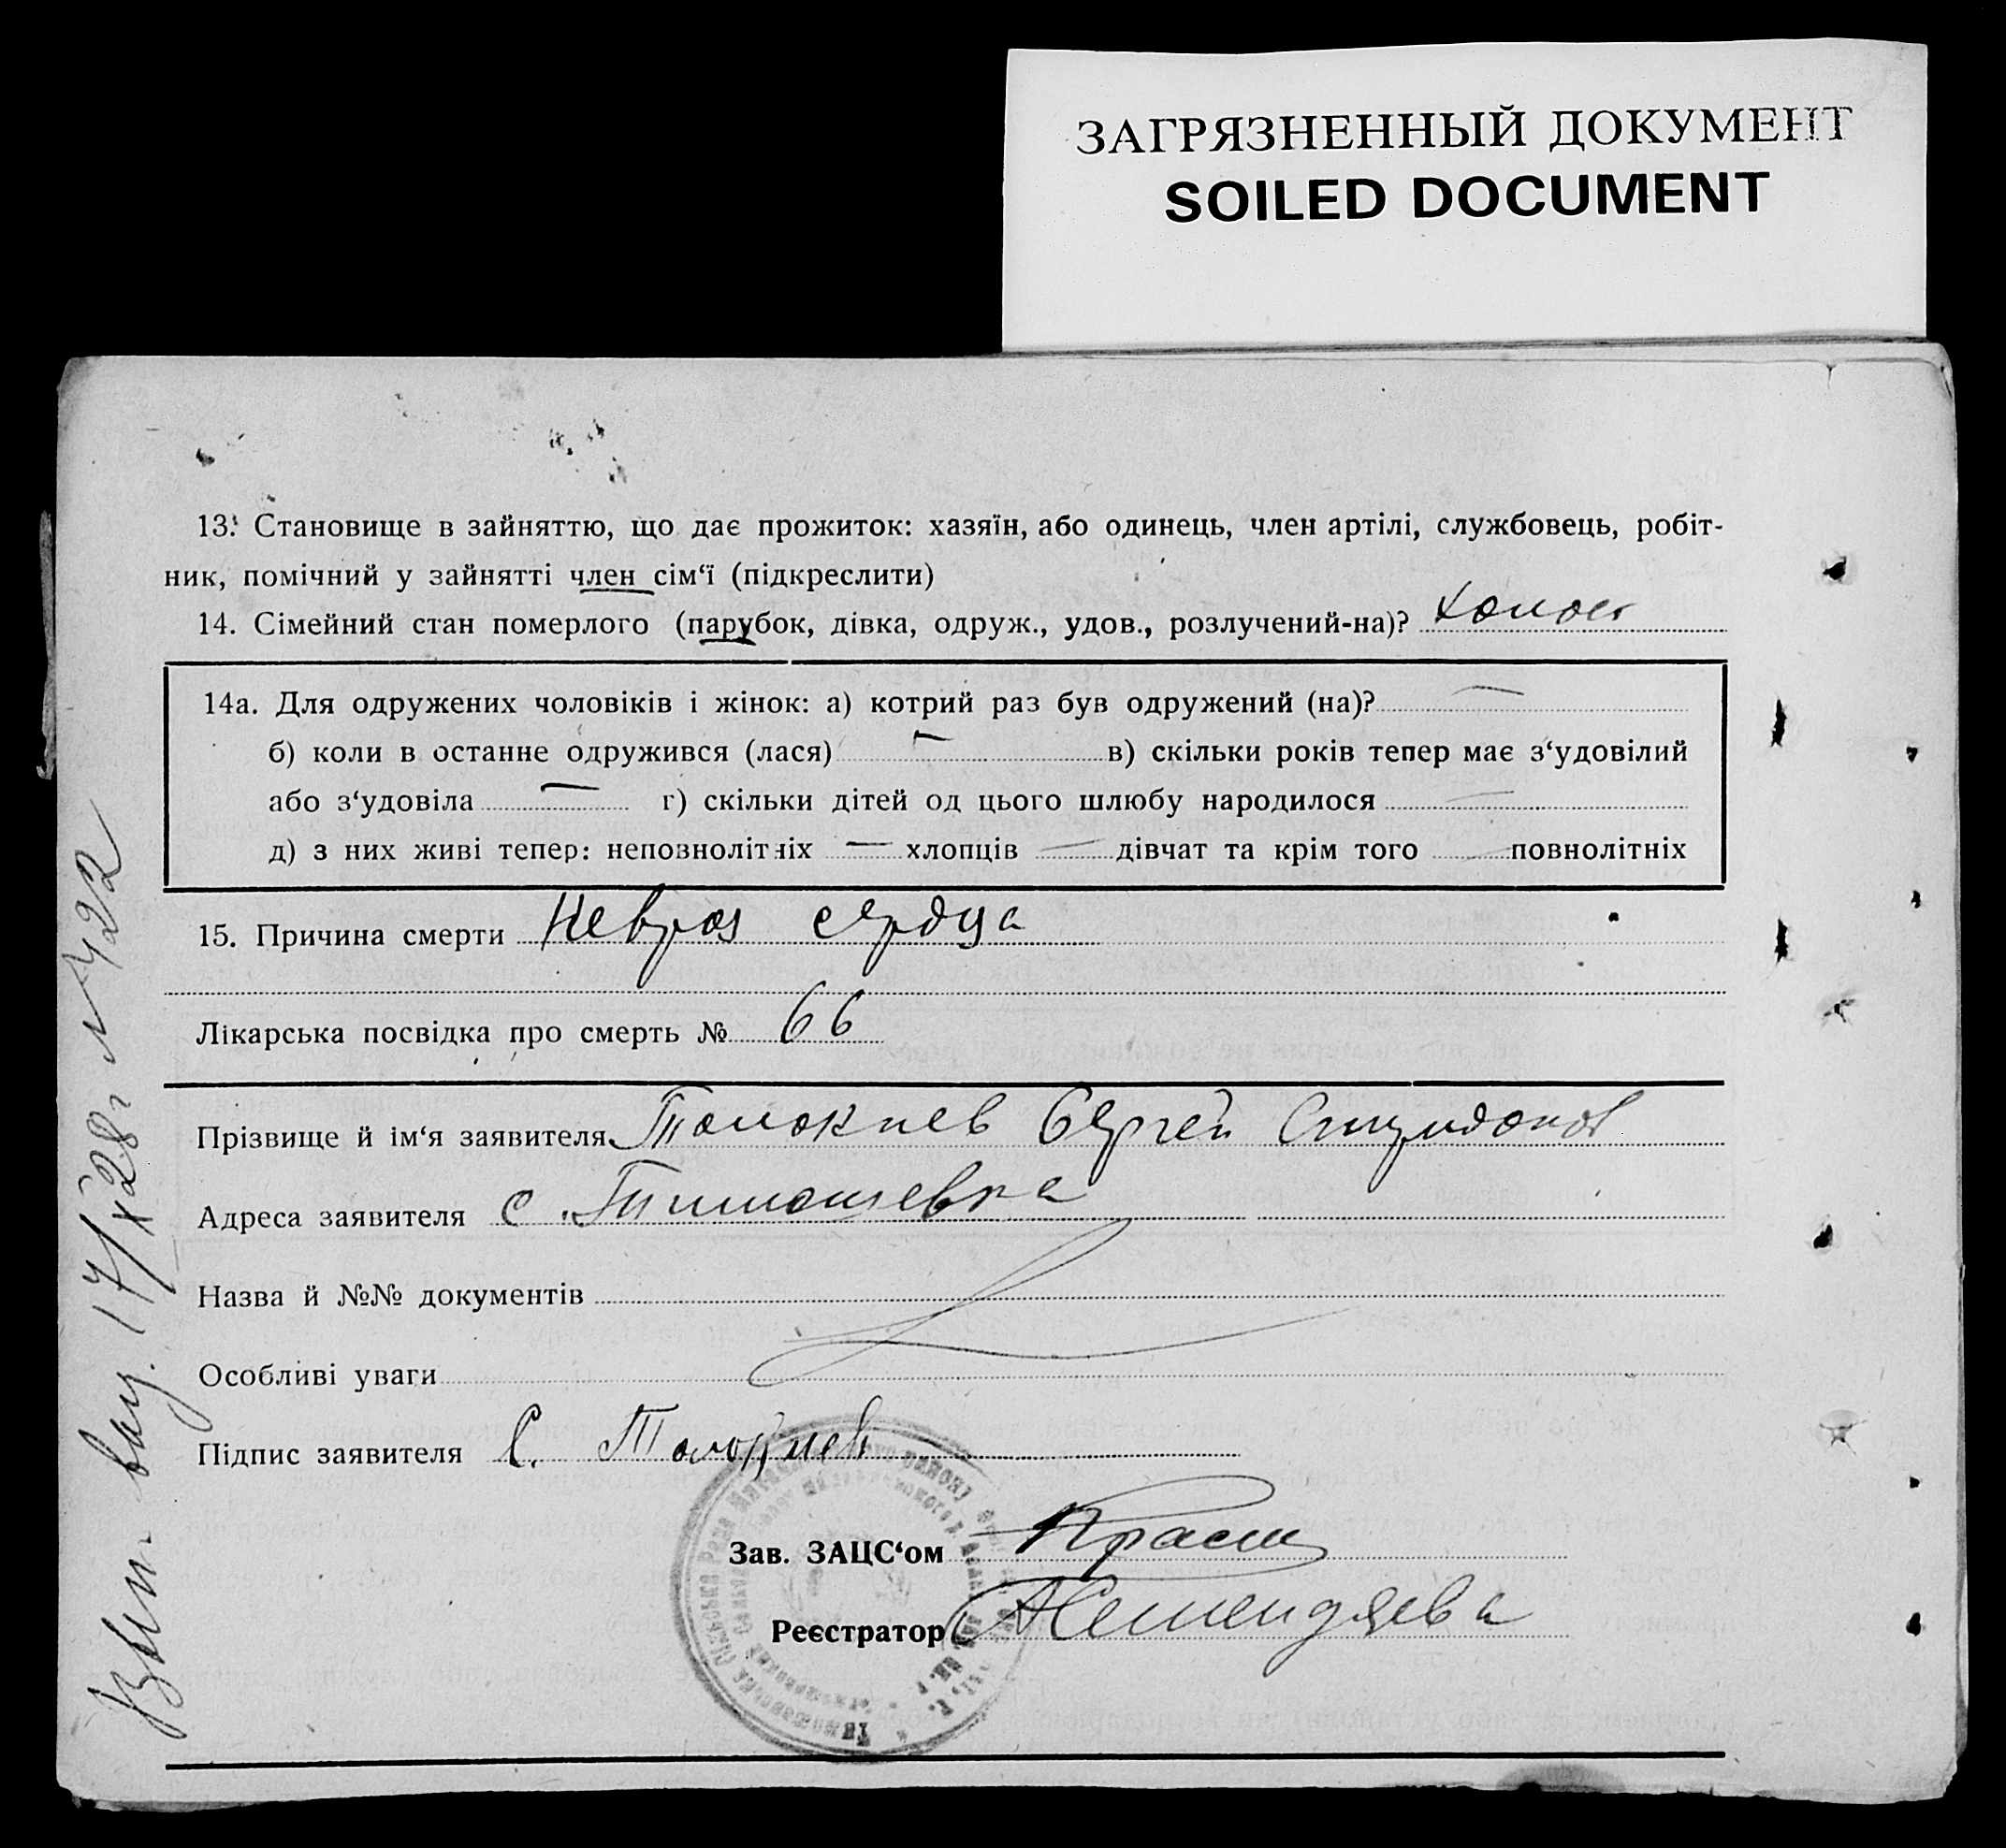 ЗАГРЯЗНЕННЫЙ ДОКУМЕНТ
SOILED DOCUMENT
13. Становище в зайняттю, що дає прожиток: хазяїн, або одинець, член артілі, службовець, робіт-
ник, помічний у зайнятті член сім‘ї (підкреслити)
14. Сімейний стан померлого (парубок, дівка, одруж., удов., розлучений-на)? холост
14а. Для одружених чоловіків і жінок: а) котрий раз був одружений (на)? —
б) коли в останне одружився (лася) — в) скільки років тепер має з‘удовілий
або з‘удовіла — г) скільки дітей од цього шлюбу народилося —
д) з них живі тепер: неповнолітніх — хлопців — дівчат та крім того — повнолітніх
15. Причина смерти Невроз сердца
Лікарська посвідка про смерть № 66
Прізвище й ім‘я заявителя Толокнев Сергей
Адреса заявителя с. Тимошевка
Назва й №№ документів
Особливі уваги
Підпис заявителя С. Толокнев
Зав. ЗАЦС‘ом
Реєстратор
17/X 28 г № 422